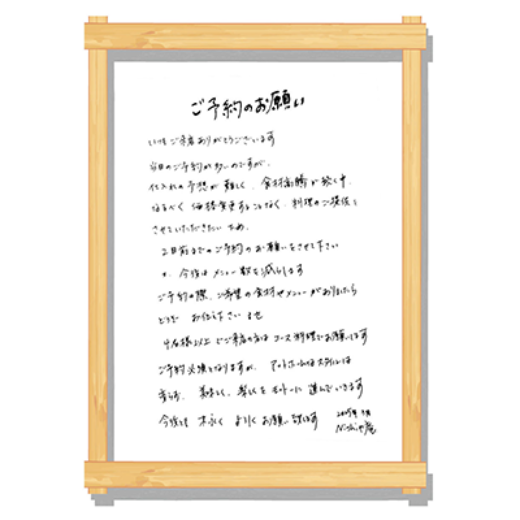 ご予約のお願い
いつもご来店ありがとうございます
当日のご予約が多いのですが、
仕入れの予想が難しく、食材高騰が続く中、
なるべく価格変更することなく、料理のご提供を
させていただきたい為、
2日前までのご予約のお願いをさせて下さい
又、今後はメニュー数を減らします
ご予約の際、ご希望の食材やメニューがありましたら
どうぞ お伝え下さいませ
4名様以上でご来店の方はコース料理でお願いします
ご予約必須となりますが、アットホームなスタイルは
変らず、美味しく、楽しくをモットーに進んでいきます
今後とも 末永く よろしくお願い致します